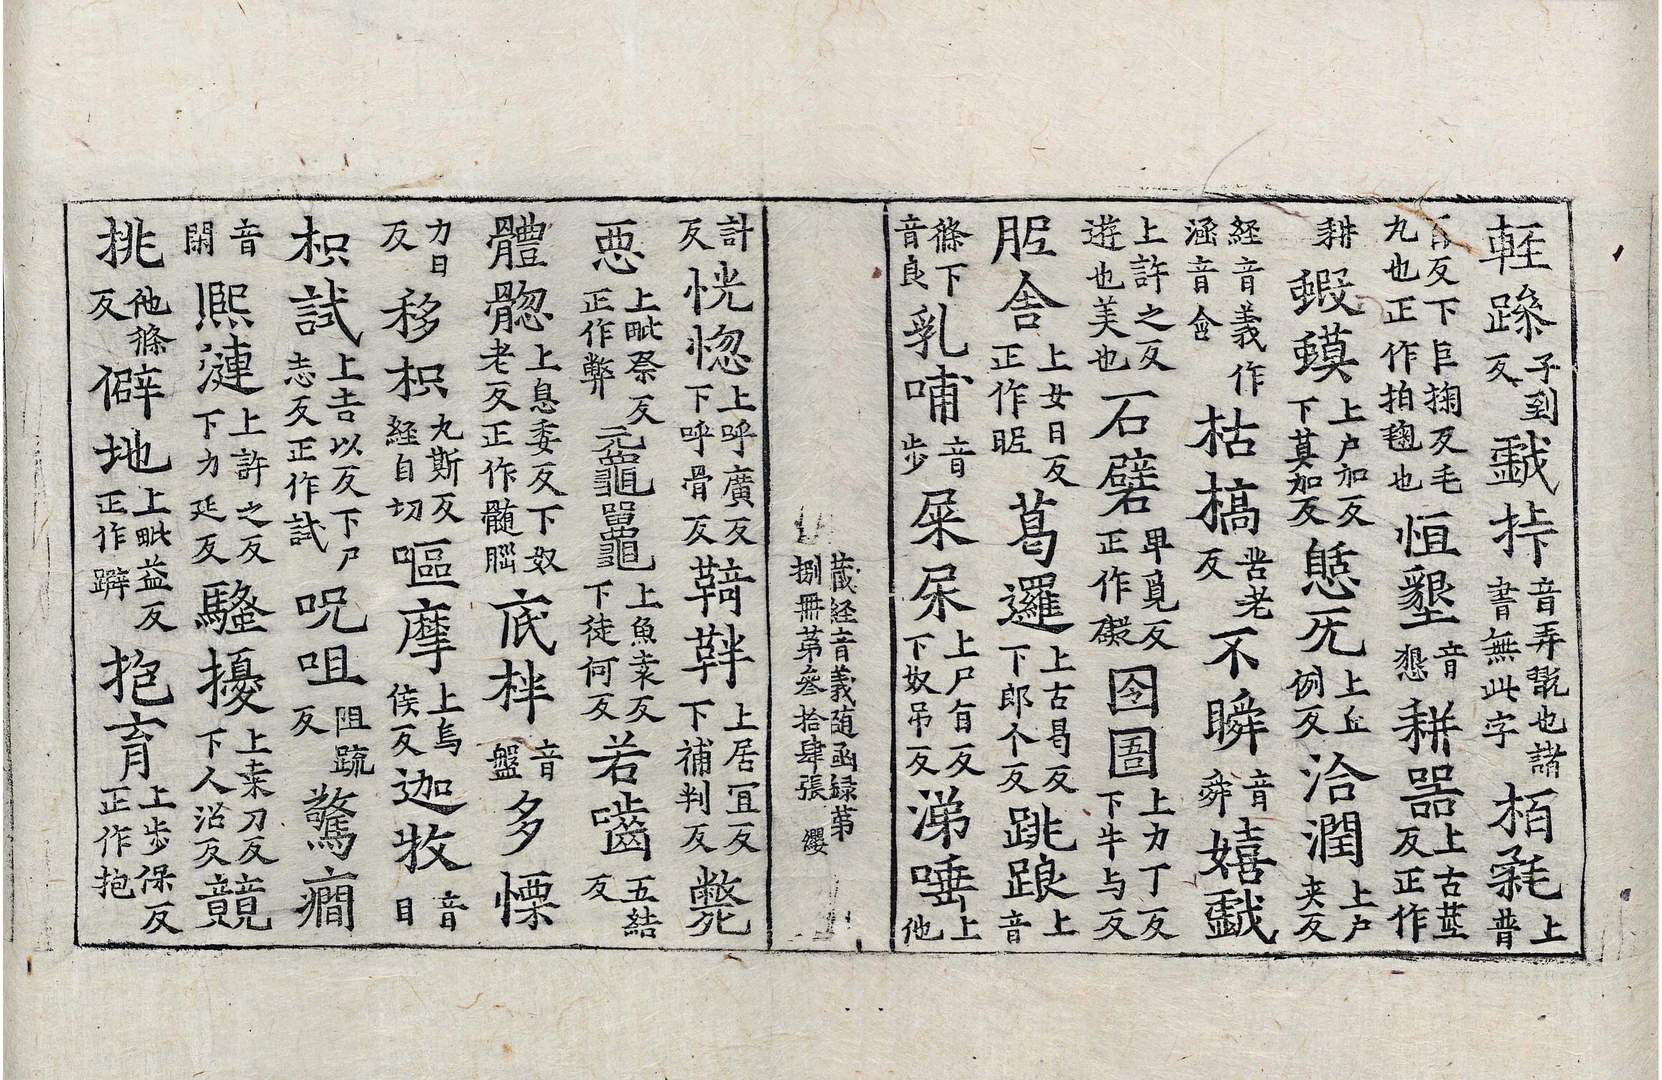 軽躁子到反戱挊音弄翫也諸書無此字栢毦上普
百反下巨掬反毛九也正作拍毱也恒墾音懇耕噐上古莖反正作
耕蝦蟇上户加反下莫加反憇死上丘例反洽潤上户夾反
經音義作涵音含枯槁苦老反不瞬音舜嬉戱
上許之反遊也美也石礕卑覓反正作礔囹圄上力丁反下牛与反
胒舍上女日反正作昵葛邏上古曷反下郎个反跳踉上音
條下音良乳哺音步屎尿上尸旨反下奴吊反涕唾上他
藏經音義随函録苐捌冊苐叄拾肆張 纓
計反恍惚上呼廣反下呼骨反鞿靽上居宜反下補判反斃
惡上毗祭反正作弊黿鼉上魚袁反下徒何反若嚙五結反
體䯛上息委反下奴老反正作髓腦底柈音盤多慄
力日反移枳九斯反經自切嘔摩上烏侯反迦牧音目
枳試上吉以反下尸志反正作試呪咀阻踈反驚癎
音閑熈漣上許之反下力延反騷擾上桒刀反下人沼反競
挑他條反僻地上毗益反正作躃抱育上步保反正作抱